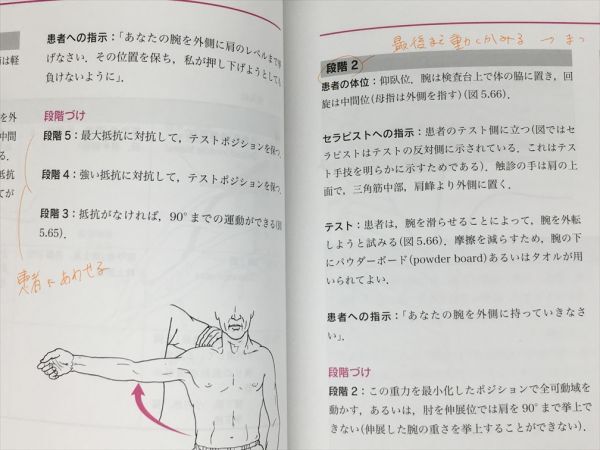 患者への指示：「あなたの腕を外側に肩のレベルまで
げなさい．その位置を保ち，私が押し下げようとしても
負けないように」．
段階づけ
段階 5：最大抵抗に対抗して，テストポジションを保つ．
段階 4：強い抵抗に対して，テストポジションを保つ．
段階 3：抵抗がなければ，90°までの運動ができる(図
5.65)．
患者にあわせる
は軽
を外
中間
る．
抵抗
てが
最後まで動くかみる
段階 2
患者の体位：仰臥位．腕は検査台上で体の脇に置き，回
旋は中間位(母指は外側を指す)(図 5.66)．
セラピストへの指示：患者のテスト側に立つ(図ではセ
ラピストはテストの反対側に示されている．これはテス
ト手技を明らかに示すためである)．触診の手は肩の上
面で，三角筋中部，肩峰より外側に置く．
テスト：患者は，腕を滑らせることによって，腕を外転
しようと試みる(図 5.66)．摩擦を減らすため，腕の下
にパウダーボード(powder board)あるいはタオルが用
いられてよい．
患者への指示：「あなたの腕を外側に持っていきなさ
い」．
段階づけ
段階 2：この重力を最小化したポジションで全可動域を
動かす，あるいは，肘を伸展位では肩を 90°まで挙上で
きない(伸展した腕の重さを挙上することができない)．